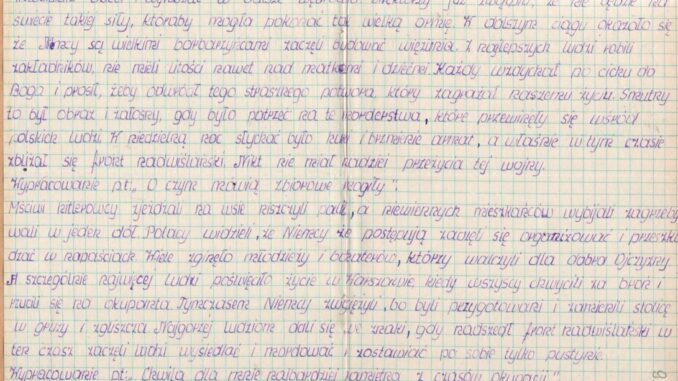 świecie takiej siły, któraby mogła pokonać tak wielką armię. W dalszym ciągu okazało się
że Niemcy są wielkimi barbarzyńcami zaczęli budować więzienia. Z najlepszych ludzi robili
zakładników, nie mieli litości nawet nad matkami i dziećmi. Każdy wzdychał po cichu do
Boga i prosił, żeby odwrócił tego strasznego potwora, który zagrażał naszemu życiu. Smutny
to był obraz i żałosny, gdy było patrzeć na te morderstwa, które przewinęły się wśród
polskich ludzi. W niedzielną noc słychać było huki i brzmienie armat, a właśnie w tym czasie
zbliżał się front nadwiślański. Nikt nie miał nadziei przeżycia tej wojny.
Wypracowanie p.t: „O czym mówią zbiorowe mogiły".
Mściwi hitlerowcy zjeżdżali na wsie niszczyli palili, a niewinnych mieszkańców wybijali
wali w jeden dół. Polacy widzieli, że Niemcy źle postępują zaczęli się organizować i przeszka
dzać w napaściach. Wiele zginęło młodzieży i bohaterów, którzy walczyli dla dobra Ojczyzny
A szczególnie najwięcej ludzi poświęciło życie w Warszawie, kiedy wszyscy chwycili za broń i
rzucili się na okupanta. Tymczasem Niemcy zwyciężyli, bo byli przygotowani i zamienili stolicę
w gruzy i zgliszcza. Najgorzej ludziom dali się we znaki, gdy nadszedł front nadwiślański w
ten czas zaczęli ludzi wysiedlać i mordować i zostawiać po sobie tylko pustynie.
Wypracowanie p.t: „Chwila dla mnie najbardziej pamiętna z czasów okupacji"